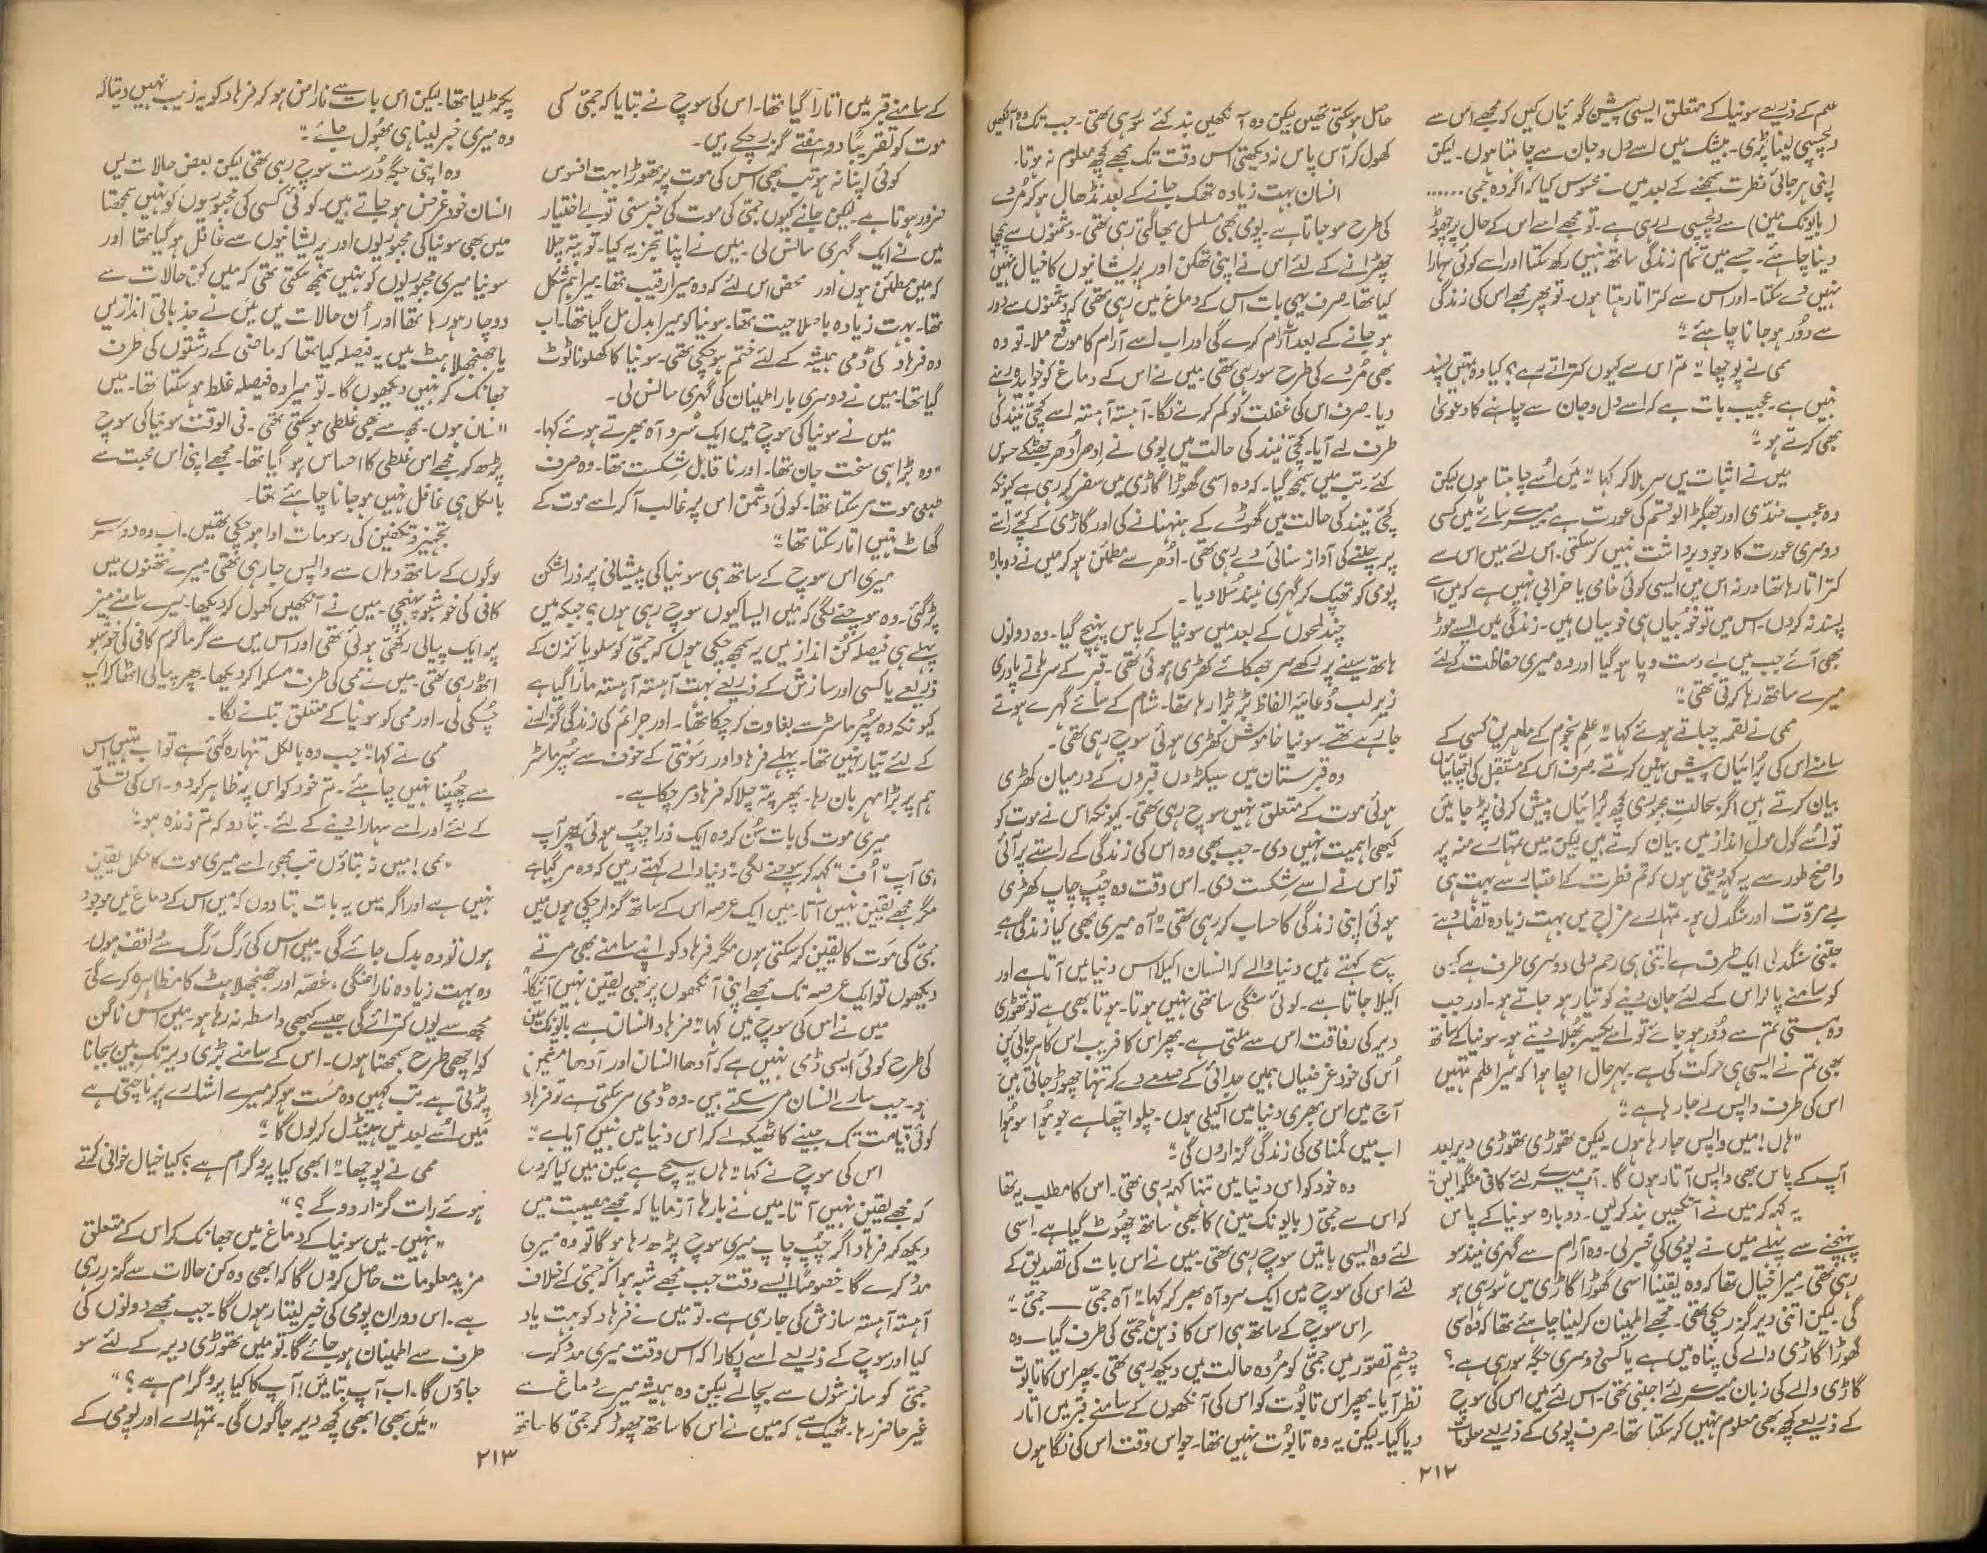 علم کے ذریعے سونیا کے متعلق ایسی پیشن گوئیاں کیں کہ مجھے اس سے
دلچسپی لینا پڑی۔ بیشک میں اسے دل و جان سے چاہتا ہوں۔ لیکن
اپنی ہرجائی فطرت سمجھنے کے بعد میں نے محسوس کیا کہ اگر وہ جمی ......
(بایونک مین) سے دلچسپی لے رہی ہے۔ تو مجھے اسے اس کے حال پر چھوڑ
دینا چاہئے۔ جسے میں تمام زندگی ساتھ نہیں رکھ سکتا اور اسے کوئی سہارا
نہیں دے سکتا۔ اور اس سے کتراتا رہتا ہوں۔ تو پھر مجھے اس کی زندگی
سے دُور ہو جانا چاہئے"
ممی نے پوچھا "تم اس سے کیوں کتراتے رہے؟ کیا وہ تمہیں پسند
نہیں ہے۔ عجیب بات ہے کہ اسے دل و جان سے چاہنے کا دعویٰ
بھی کرتے ہو"
میں نے اثبات میں سر ہلا کر کہا "میں اُسے چاہتا ہوں لیکن
وہ عجب ضدی اور جھگڑالو قسم کی عورت ہے میرے سائے میں کسی
دوسری عورت کا وجود برداشت نہیں کر سکتی۔ اس لئے میں اس سے
کتراتا رہا تھا ورنہ اس میں ایسی کوئی خامی یا خرابی نہیں ہے کہ میں اسے
پسند نہ کروں۔ اس میں تو خوبیاں ہی خوبیاں ہیں۔ زندگی میں ایسے موڑ
بھی آئے جب میں بے دست و پا ہو گیا اور وہ میری حفاظت کے لئے
میرے ساتھ رہا کرتی تھی"
ممی نے لقمہ چباتے ہوئے کہا "علم نجوم کے ماہرین کسی کے
سامنے اس کی بُرائیاں پیش نہیں کرتے۔ صرف اس کے مستقبل کی اچھائیاں
بیان کرتے ہیں اگر بحالت مجبوری کچھ بُرائیاں پیش کرنی پڑ جائیں
تو اُسے گول مول انداز میں بیان کرتے ہیں لیکن میں تمہارے منہ پر
واضح طور سے یہ کہہ دیتی ہوں کہ تم فطرت کے اعتبار سے بہت ہی
بے مروّت اور سنگدل ہو۔ تمہارے مزاج میں بہت زیادہ تضاد ہے
جتنی سنگدلی ایک طرف ہے اتنی ہی رحم دلی دوسری طرف ہے کسی
کو سامنے پا کر اس کے لئے جان دینے کو تیار ہو جاتے ہو۔ اور جب
وہ ہستی تم سے دُور ہو جائے تو اسے یکسر بھُلا دیتے ہو۔ سونیا کے ساتھ
بھی تم نے ایسی ہی حرکت کی ہے۔ بہرحال اچھا ہوا کہ میرا علم تمہیں
اس کی طرف واپس لے جا رہا ہے"
"ہاں! میں واپس جا رہا ہوں۔ لیکن تھوڑی تھوڑی دیر بعد
آپ کے پاس بھی واپس آتا رہوں گا۔ آپ میرے لئے کافی منگوائیں"
یہ کہہ کر میں نے آنکھیں بند کر لیں۔ دوبارہ سونیا کے پاس
پہنچنے سے پہلے میں نے پومی کی خبر لی۔ وہ آرام سے گہری نیند سو
رہی تھی۔ میرا خیال تھا کہ وہ یقیناً اسی گھوڑا گاڑی میں سو رہی ہو
گی لیکن اتنی دیر گزر چکی تھی۔ مجھے اطمینان کر لینا چاہئے تھا کہ وہ اسی
گھوڑا گاڑی والے کی پناہ میں ہے یا کسی دوسری جگہ سو رہی ہے۔؟
گاڑی والے کی زبان میرے لئے اجنبی تھی۔ اس لئے میں اس کی سوچ
کے ذریعے کچھ بھی معلوم نہیں کر سکتا تھا۔ صرف پومی کے ذریعے معلومات
حاصل ہو سکتی تھیں لیکن وہ آنکھیں بند کئے سو رہی تھی۔ جب تک وہ آنکھیں
کھول کر آس پاس نہ دیکھتی اس وقت تک مجھے کچھ معلوم نہ ہوتا۔
انسان بہت زیادہ تھک جانے کے بعد نڈھال ہو کر مُردے
کی طرح سو جاتا ہے۔ پومی بھی مسلسل بھاگتی رہی تھی۔ دشمنوں سے پیچھا
چھڑانے کے لئے اس نے اپنی تھکن اور پریشانیوں کا خیال نہیں
کیا تھا۔ صرف یہی بات اس کے دماغ میں رہی تھی کہ دشمنوں سے دُور
ہو جانے کے بعد آرام کرے گی اور اب اسے آرام کا موقع ملا۔ تو وہ
بھی مُردے کی طرح سو رہی تھی۔ میں نے اس کے دماغ کو خوابیدہ رہنے
دیا۔ صرف اس کی غفلت کو کم کرنے لگا۔ آہستہ آہستہ اسے کچی نیند کی
طرف لے آیا۔ کچی نیند کی حالت میں پومی نے اِدھر اُدھر جھٹکے محسوس
کئے۔ تب میں سمجھ گیا۔ کہ وہ اسی گھوڑا گاڑی میں سفر کر رہی ہے کیونکہ
کچی نیند کی حالت میں گھوڑے کے ہنہنانے کی اور گاڑی کے کچے راستے
پر چلنے کی آواز سنائی دے رہی تھی۔ اُدھر سے مطمئن ہو کر میں نے دوبارہ
پومی کو تھپک کر گہری نیند سُلا دیا۔
چند لمحوں کے بعد میں سونیا کے پاس پہنچ گیا۔ وہ دونوں
ہاتھ سینے پر رکھے سر جھکائے کھڑی ہوئی تھی۔ قبر کے سرہانے پادری
زیر لب دُعائیہ الفاظ بڑبڑا رہا تھا۔ شام کے سائے گہرے ہوتے
جا رہے تھے۔ سونیا خاموش کھڑی ہوئی سوچ رہی تھی۔
وہ قبرستان میں سیکڑوں قبروں کے درمیان کھڑی
ہوئی موت کے متعلق نہیں سوچ رہی تھی۔ کیونکہ اس نے موت کو
کبھی اہمیت نہیں دی۔ جب بھی وہ اس کی زندگی کے راستے پر آئی
تو اس نے اسے شکست دی۔ اس وقت وہ چُپ چاپ کھڑی
ہوئی اپنی زندگی کا حساب کر رہی تھی۔ "آہ میری بھی کیا زندگی ہے
سچ کہتے ہیں دنیا والے کہ انسان اکیلا اس دنیا میں آتا ہے اور
اکیلا جاتا ہے۔ کوئی سنگی ساتھی نہیں ہوتا۔ ہوتا بھی ہے تو تھوڑی
دیر کی رفاقت اس سے ملتی ہے۔ پھر اس کا فریب اس کا ہرجائی پن
اُس کی خود غرضیاں ہمیں جدائی کے صدمے دے کر تنہا چھوڑ جاتی ہیں
آج میں اس بھری دنیا میں اکیلی ہوں۔ چلو اچھا ہے جو ہُوا سو ہُوا
اب میں گمنامی کی زندگی گزاروں گی"
وہ خود کو اس دنیا میں تنہا کہہ رہی تھی۔ اس کا مطلب یہ تھا
کہ اس سے جمی (بایونک مین) کا بھی ساتھ چھُوٹ گیا ہے۔ اسی
لئے وہ ایسی باتیں سوچ رہی تھی۔ میں نے اس بات کی تصدیق کے
لئے اس کی سوچ میں ایک سرد آہ بھر کر کہا "آہ جمی — جمی"
اس سوچ کے ساتھ ہی اس کا ذہن جمی کی طرف گیا۔ وہ
چشمِ تصوّر میں جمی کو مُردہ حالت میں دیکھ رہی تھی۔ پھر اس کا تابوت
نظر آیا۔ پھر اس تابُوت کو اس کی آنکھوں کے سامنے قبر میں اتار
دیا گیا۔ لیکن یہ وہ تابُوت نہیں تھا۔ جو اس وقت اس کی نگاہوں
۲۱۲
کے سامنے قبر میں اتارا گیا تھا۔ اس کی سوچ نے بتایا کہ جمی کی
موت کو تقریباً دو ہفتے گزر چکے ہیں۔
کوئی اپنا نہ ہو تب بھی اس کی موت پر تھوڑا بہت افسوس
ضرور ہوتا ہے۔ لیکن جانے کیوں جمی کی موت کی خبر سنی تو بے اختیار
میں نے ایک گہری سانس لی۔ میں نے اپنا تجزیہ کیا۔ تو پتہ چلا
کہ میں مطمئن ہوں اور محض اس لئے کہ وہ میرا رقیب تھا۔ میرا ہمشکل
تھا۔ بہت زیادہ باصلاحیت تھا۔ سونیا کو میرا بدل مل گیا تھا۔ اب
وہ فرہاد کی ڈمی ہمیشہ کے لئے ختم ہو چکی تھی۔ سونیا کا کھلونا ٹوٹ
گیا تھا۔ میں نے دوسری بار اطمینان کی گہری سانس لی۔
میں نے سونیا کی سوچ میں ایک سرد آہ بھرتے ہوئے کہا۔
"وہ بڑا ہی سخت جان تھا۔ اور ناقابلِ شکست تھا۔ وہ صرف
طبعی موت مر سکتا تھا۔ کوئی دشمن اس پر غالب آ کر اسے موت کے
گھاٹ نہیں اتار سکتا تھا"
میری اس سوچ کے ساتھ ہی سونیا کی پیشانی پر ذرا شکن
پڑ گئی۔ وہ سوچنے لگی کہ میں ایسا کیوں سوچ رہی ہوں؟ جبکہ میں
پہلے ہی فیصلہ کُن انداز میں یہ سمجھ چکی ہوں کہ جمی کو سلو پائزن کے
ذریعے یا کسی اور سازش کے ذریعے بہت آہستہ آہستہ مارا گیا ہے
کیونکہ وہ سُپر ماسٹر سے بغاوت کر چکا تھا۔ اور جرائم کی زندگی گزارنے
کے لئے تیار نہیں تھا۔ پہلے فرہاد اور رسونتی کے خوف سے سُپر ماسٹر
ہم پر بڑا مہربان رہا۔ پھر پتہ چلا کہ فرہاد مر چکا ہے۔
میری موت کی بات سُن کر وہ ایک ذرا چُپ ہوئی پھر آپ
ہی آپ "اُف" کہہ کر سوچنے لگی "دنیا والے کہتے رہیں کہ وہ مر گیا ہے
مگر مجھے یقین نہیں آتا۔ میں ایک عرصہ اس کے ساتھ گزار چکی ہوں میں
جمی کی مَوت کا یقین کر سکتی ہوں مگر فرہاد کو اپنے سامنے بھی مرتے
دیکھوں تو ایک عرصہ تک مجھے اپنی آنکھوں پر بھی یقین نہیں آئیگا"
میں نے اس کی سوچ میں کہا "فرہاد انسان ہے بایونک مین
کی طرح کوئی ایسی ڈمی نہیں ہے کہ آدھا انسان اور آدھا مشین
ہو۔ جب سارے انسان مر سکتے ہیں۔ وہ ڈمی مر سکتی ہے تو فرہاد
کوئی قیامت تک جینے کا ٹھیکہ لے کر اس دنیا میں نہیں آیا ہے"
اس کی سوچ نے کہا "ہاں یہ سچ ہے لیکن میں کیا کروں
کہ مجھے یقین نہیں آتا۔ میں نے بارہا آزمایا کہ مجھے مصیبت میں
دیکھ کر فرہاد اگر چُپ چاپ میری سوچ پڑھ رہا ہو گا تو وہ میری
مدد کرے گا۔ خصوصاً ایسے وقت جب مجھے شبہ ہوا کہ جمی کے خلاف
آہستہ آہستہ سازش کی جا رہی ہے۔ تو میں نے فرہاد کو بہت یاد
کیا اور سوچ کے ذریعے اسے پکارا کہ اس وقت میری مدد کرے۔
جمی کو سازشوں سے بچا لے لیکن وہ ہمیشہ میرے دماغ سے
غیر حاضر رہا۔ ٹھیک ہے کہ میں نے اس کا ساتھ چھوڑ کر جمی کا ساتھ
پکڑ لیا تھا۔ لیکن اس بات سے ناراض ہو کر فرہاد کو یہ زیب نہیں دیتا کہ
وہ میری خبر لینا ہی بھُول جائے"
وہ اپنی جگہ دُرست سوچ رہی تھی لیکن بعض حالات میں
انسان خود غرض ہو جاتے ہیں۔ کوئی کسی کی مجبوریوں کو نہیں سمجھتا
میں بھی سونیا کی مجبوریوں اور پریشانیوں سے غافل ہو گیا تھا اور
سونیا میری مجبوریوں کو نہیں سمجھ سکتی تھی کہ میں کن حالات سے
دوچار ہو رہا تھا اور اُن حالات میں میں نے جذباتی انداز میں
یا جھنجھلاہٹ میں یہ فیصلہ کیا تھا کہ ماضی کے رشتوں کی طرف
جھانک کر نہیں دیکھوں گا۔ تو میرا وہ فیصلہ غلط ہو سکتا تھا۔ میں
انسان ہوں۔ مجھ سے بھی غلطی ہو سکتی تھی۔ فی الوقت سونیا کی سوچ
پڑھ کر مجھے اس غلطی کا احساس ہو گیا تھا۔ مجھے اپنی اس محبت سے
بالکل ہی غافل نہیں ہو جانا چاہئے تھا۔
تجہیز و تکفین کی رسومات ادا ہو چکی تھیں۔ اب وہ دوسرے
لوگوں کے ساتھ وہاں سے واپس جا رہی تھی۔ میرے نتھنوں میں
کافی کی خوشبو پہنچی۔ میں نے آنکھیں کھول کر دیکھا۔ میرے سامنے میز
پر ایک پیالی رکھی ہوئی تھی اور اس میں سے گرما گرم کافی کی خوشبو
اٹھ رہی تھی۔ میں نے ممی کی طرف مسکرا کر دیکھا۔ پھر پیالی اٹھا کر ایک
چُسکی لی۔ اور ممی کو سونیا کے متعلق بتانے لگا۔
ممی نے کہا "جب وہ بالکل تنہا رہ گئی ہے تو اب تمہیں اس
سے چھُپنا نہیں چاہئے۔ تم خود کو اس پر ظاہر کر دو۔ اس کی تسلّی
کے لئے اور اسے سہارا دینے کے لئے۔ بتا دو کہ تم زندہ ہو"
"ممی! میں نہ بتاؤں تب بھی اسے میری موت کا مکمل یقین
نہیں ہے اور اگر میں یہ بات بتا دوں کہ میں اس کے دماغ میں موجود
ہوں تو وہ بدک جائے گی۔ میں اس کی رَگ رَگ سے واقف ہوں۔
وہ بہت زیادہ ناراضگی، غصّہ اور جھنجھلاہٹ کا مظاہرہ کرے گی
مجھ سے یوں کترائے گی جیسے کبھی واسطہ نہ رہا ہو۔ میں اس ناگن
کو اچھی طرح سمجھتا ہوں۔ اس کے سامنے بڑی دیر تک بین بجانا
پڑتی ہے۔ تب کہیں وہ مست ہو کر میرے اشارے پر ناچتی ہے
میں اُسے بعد میں ہینڈل کر لوں گا"
ممی نے پوچھا "ابھی کیا پروگرام ہے؟ کیا خیال خوانی کرتے
ہوئے رات گزار دو گے؟"
"نہیں۔ میں سونیا کے دماغ میں جھانک کر اس کے متعلق
مزید معلومات حاصل کروں گا کہ ابھی وہ کن حالات سے گزر رہی
ہے۔ اس دوران پومی کی خبر لیتا رہوں گا۔ جب مجھے دونوں کی
طرف سے اطمینان ہو جائے گا۔ تو میں تھوڑی دیر کے لئے سو
جاؤں گا۔ اب آپ بتائیں! آپ کا کیا پروگرام ہے؟"
"میں بھی ابھی کچھ دیر جاگوں گی۔ تمہارے اور پومی کے
۲۱۳